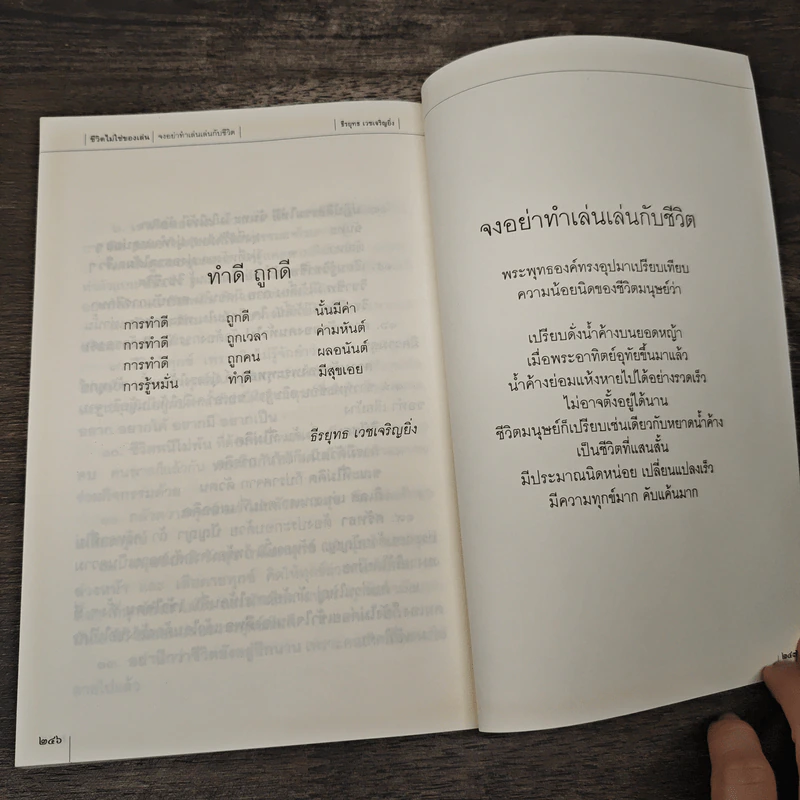 ชีวิตไม่ใช่ของเล่น | จงอย่าทำเล่นเล่นกับชีวิต | ธีรยุทธ เวชเจริญยิ่ง
ทำดี ถูกดี
การทำดี ถูกดี นั้นมีค่า
การทำดี ถูกเวลา ค่ามหันต์
การทำดี ถูกคน ผลอนันต์
การรู้หมั่น ทำดี มีสุขเอย
ธีรยุทธ เวชเจริญยิ่ง
๒๔๖
จงอย่าทำเล่นเล่นกับชีวิต
พระพุทธองค์ทรงอุปมาเปรียบเทียบ
ความน้อยนิดของชีวิตมนุษย์ว่า
เปรียบดั่งน้ำค้างบนยอดหญ้า
เมื่อพระอาทิตย์อุทัยขึ้นมาแล้ว
น้ำค้างย่อมแห้งหายไปได้อย่างรวดเร็ว
ไม่อาจตั้งอยู่ได้นาน
ชีวิตมนุษย์ก็เปรียบเช่นเดียวกับหยาดน้ำค้าง
เป็นชีวิตที่แสนสั้น
มีประมาณนิดหน่อย เปลี่ยนแปลงเร็ว
มีความทุกข์มาก คับแค้นมาก